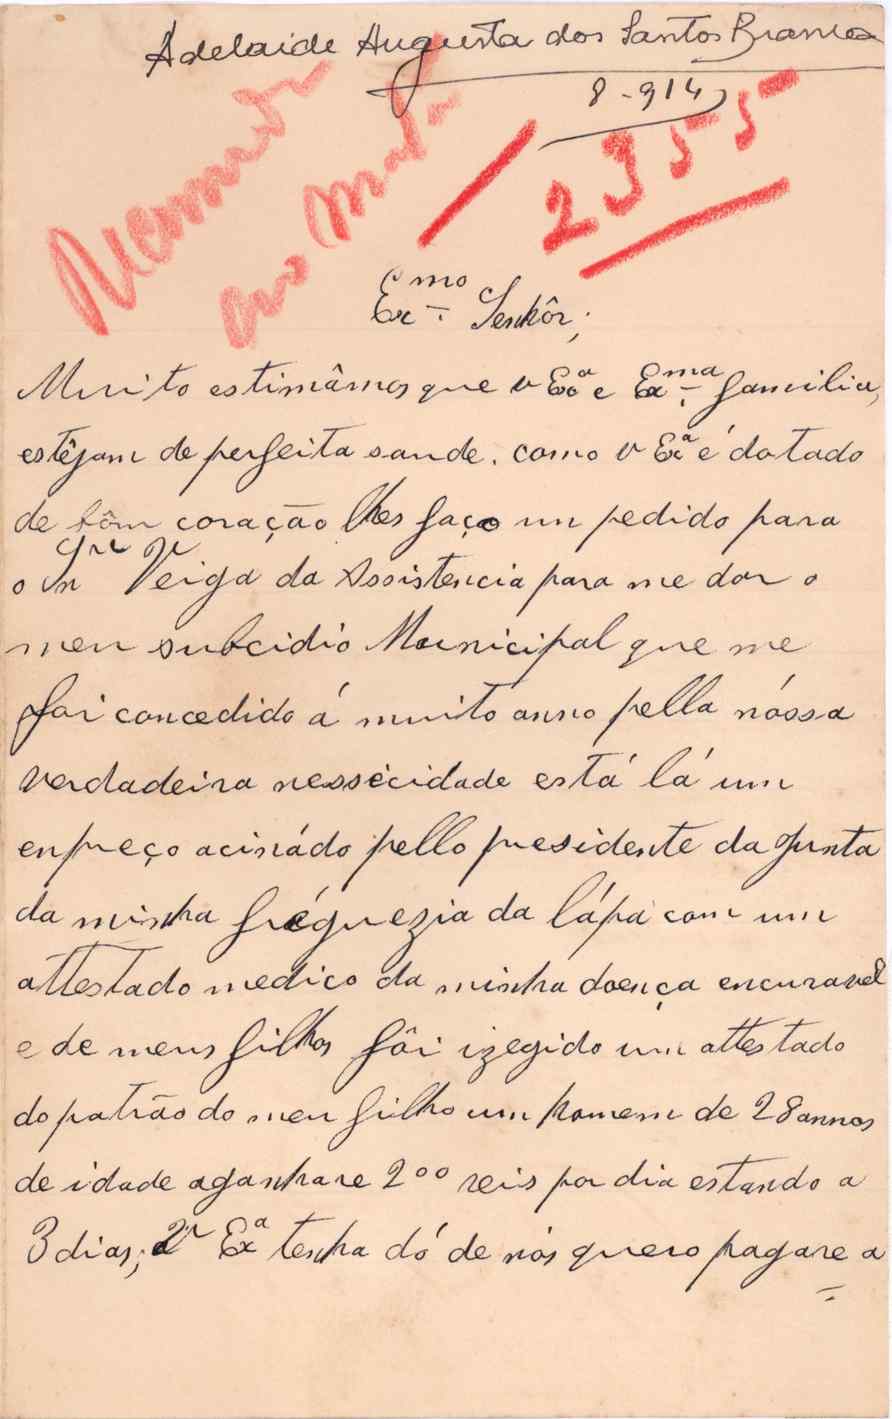 Adelaide Augusta dos Santos Branco
8-914
2355
ao
Exmo Senhôr;
Muito estimâmos que v Exª e Exma familia,
estêjam de perfeita saude. como v Exª é dotado
de bôm coração lhes faço un pedido para
o Snr Veiga da Assistencia para me dar o
meu subcidio Municipal que me
foi concedido á muito anno pella nóssa
verdadeira nessecidade está lá um
enpreço acinádo pello presidente da Junta
da minha fréguezia da lápa com um
attestado medico da minha doença encuravel
e de meus filhos fôi izegido um attestado
do patrão do meu filho um homem de 28 annos
de idade aganhare 200 reis por dia estando a
3 dias; Vª Exª tenha dó de nós quero pagare a